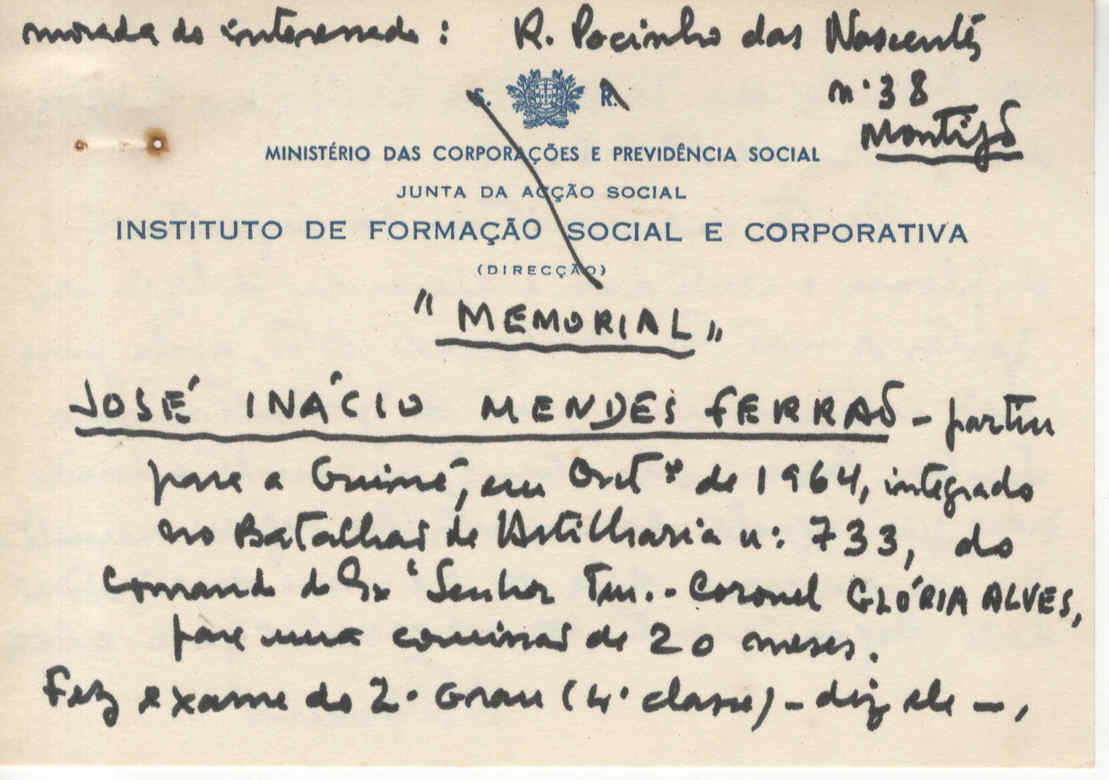 morada do interessado: R. Pocinho das Nascentes
nº 38
Montijo
S. R.
MINISTÉRIO DAS CORPORAÇÕES E PREVIDÊNCIA SOCIAL
JUNTA DA ACÇÃO SOCIAL
INSTITUTO DE FORMAÇÃO SOCIAL E CORPORATIVA
(DIRECÇÃO)
"MEMORIAL"
JOSÉ INÁCIO MENDES FERRAÕ - partiu
para a Guiné, em Outº de 1964, integrado
no Batalhão de Artilharia nº 733, do
Comando do Exº Senhor Ten.-Coronel GLÓRIA ALVES,
para uma comissão de 20 meses.
Fez exame do 2º Grau (4ª classe) - diz ele -,